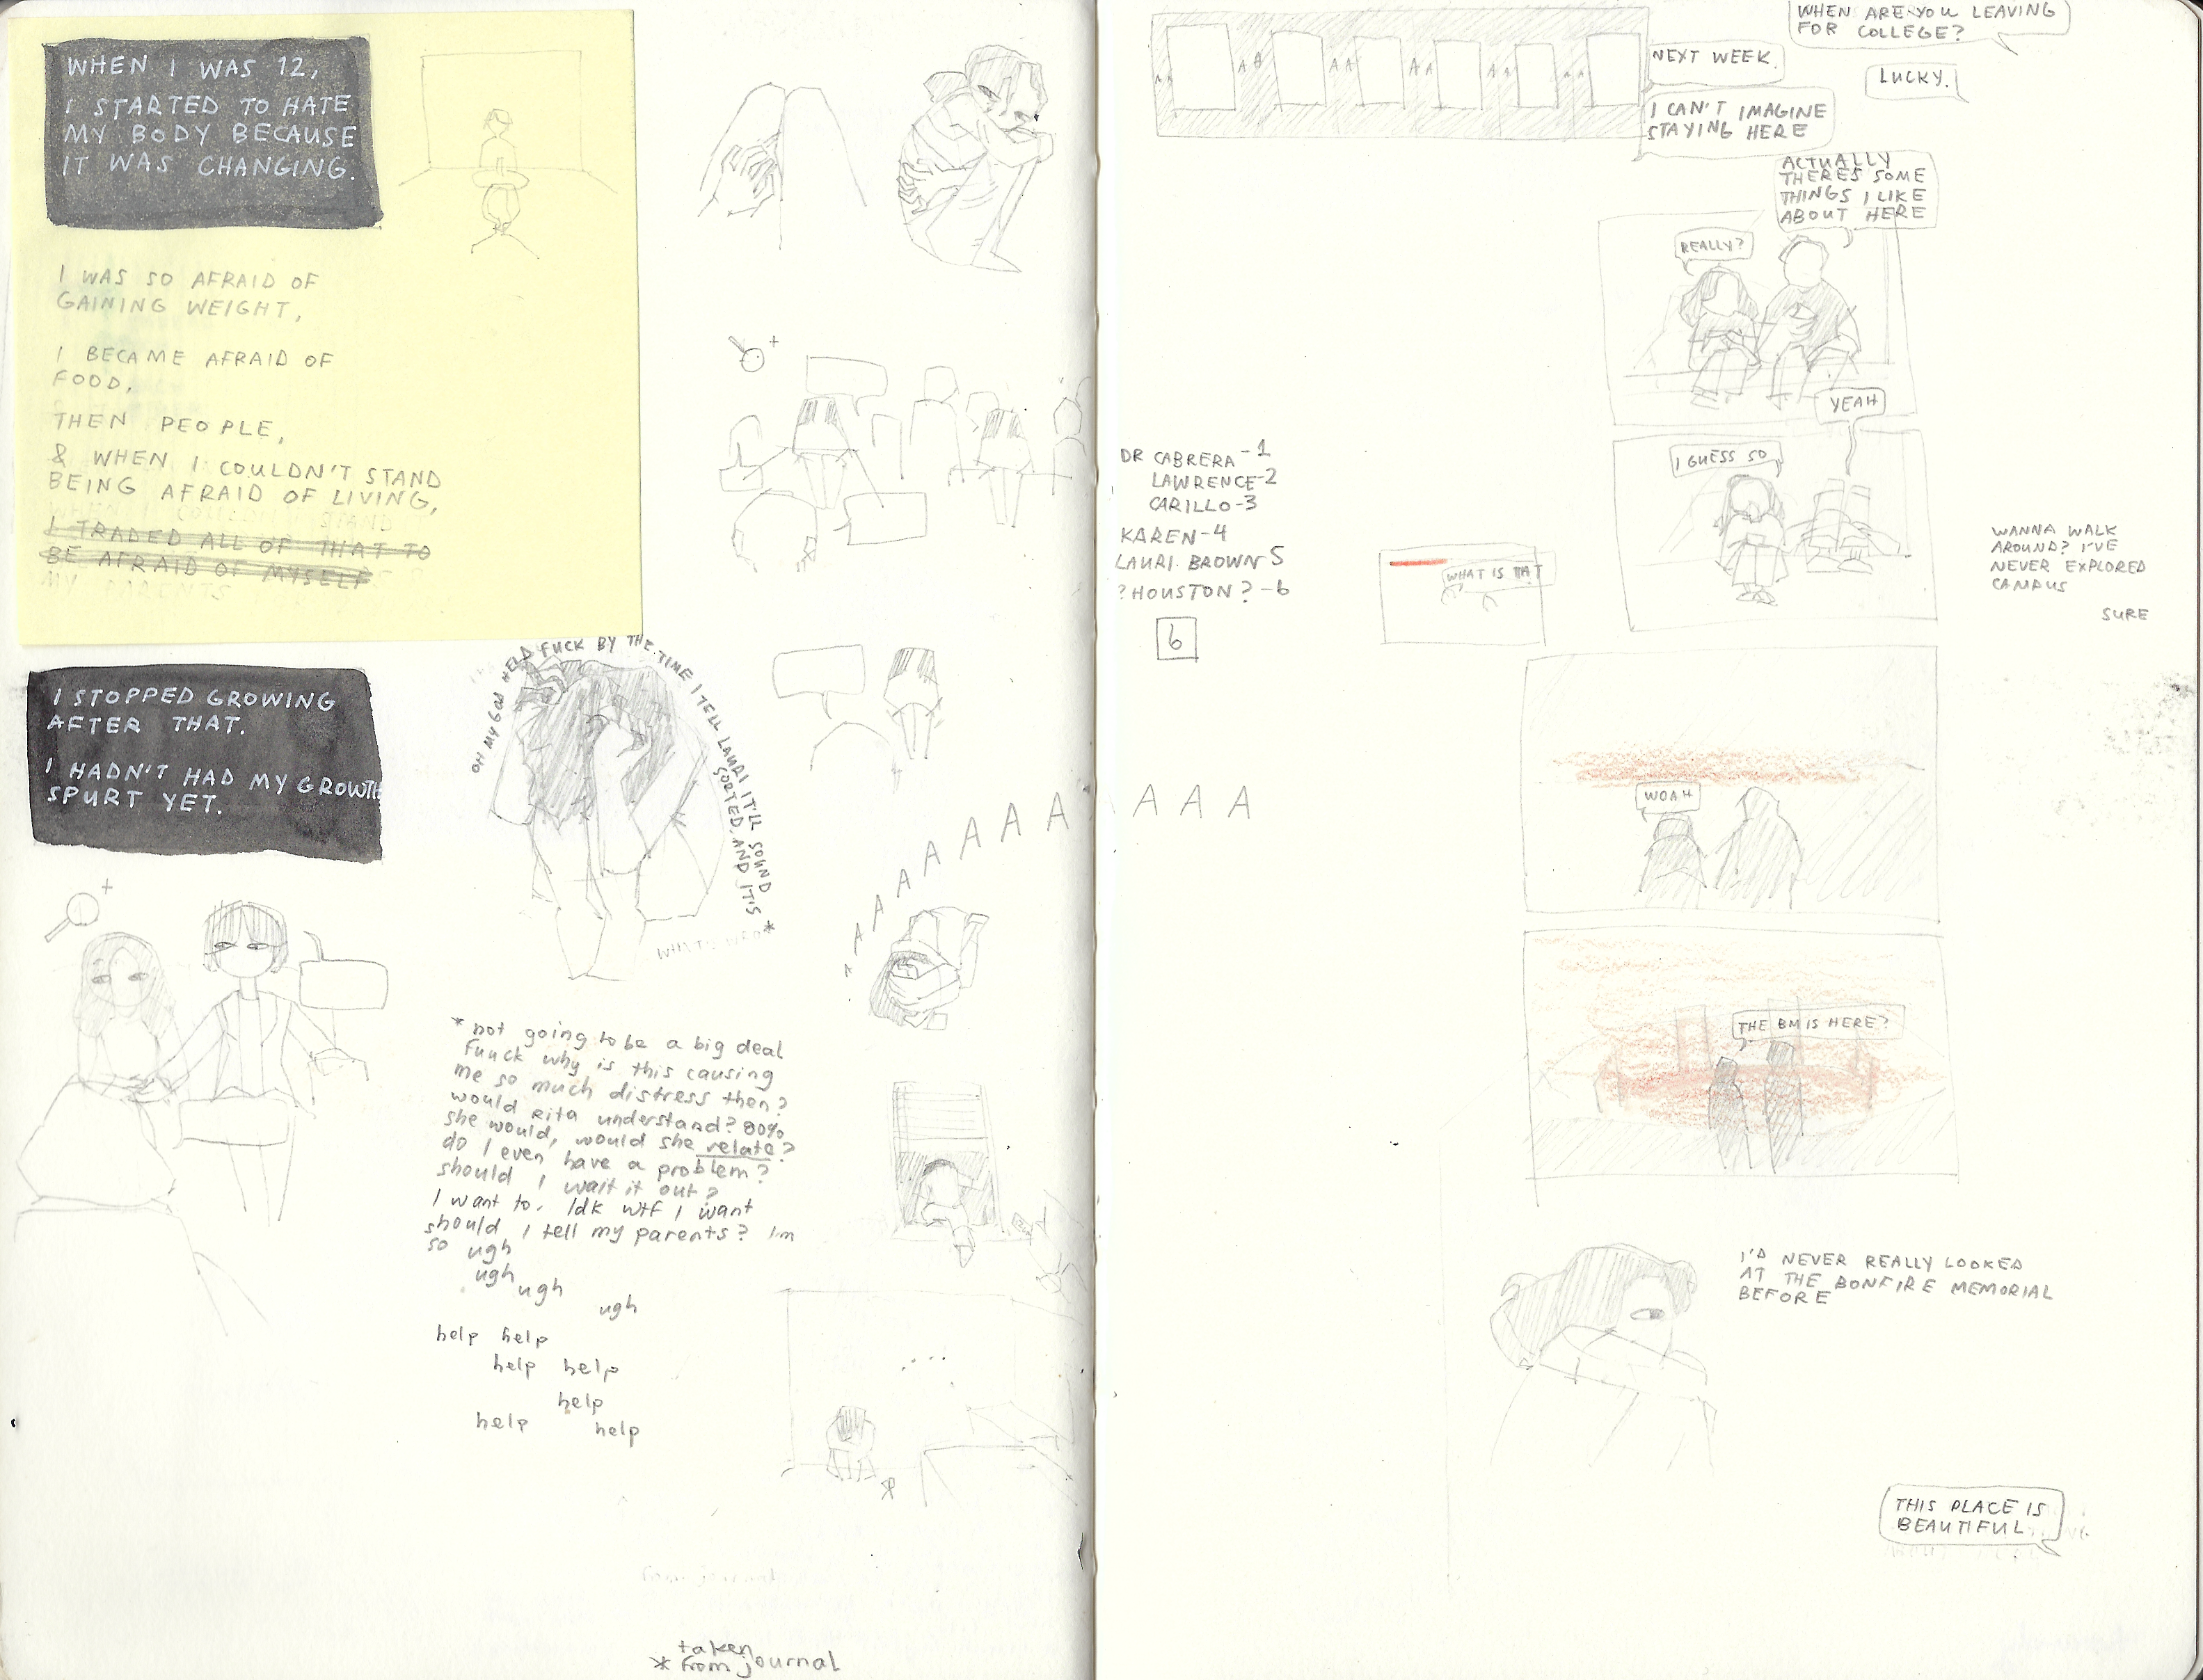 WHEN I WAS 12,
I STARTED TO HATE
MY BODY BECAUSE
IT WAS CHANGING.
I WAS SO AFRAID OF
GAINING WEIGHT,
I BECAME AFRAID OF
FOOD,
THEN PEOPLE,
& WHEN I COULDN'T STAND
BEING AFRAID OF LIVING,
I TRADED ALL OF THAT TO
BE AFRAID OF MYSELF
MY PARENTS
I STOPPED GROWING
AFTER THAT.
I HADN'T HAD MY GROWTH
SPURT YET.
OH MY GOD HELP FUCK BY THE TIME I TELL LAURI IT'LL SOUND
SORTED, AND IT'S *
* not going to be a big deal
fuuck why is this causing
me so much distress then?
would Rita understand? 80%
she would, would she relate?
do I even have a problem?
should I wait it out?
I want to. Idk wtf I want
should I tell my parents? I'm
so ugh
ugh
ugh
ugh
help help
help help
help
help help
taken
* from journal
A A A A A A A A A A A
WHEN ARE YOU LEAVING
FOR COLLEGE?
NEXT WEEK.
LUCKY.
I CAN'T IMAGINE
STAYING HERE
AA AA AA AA AA AA
ACTUALLY
THERES SOME
THINGS I LIKE
ABOUT HERE
REALLY?
YEAH
I GUESS SO
DR CABRERA - 1
LAWRENCE - 2
CARILLO - 3
KAREN - 4
LAURI BROWN 5
? HOUSTON? - 6
6
WHAT IS THAT
WANNA WALK
AROUND? I'VE
NEVER EXPLORED
CAMPUS
SURE
WOAH
THE BM IS HERE?
I'D NEVER REALLY LOOKED
AT THE BONFIRE MEMORIAL
BEFORE
THIS PLACE IS
BEAUTIFUL